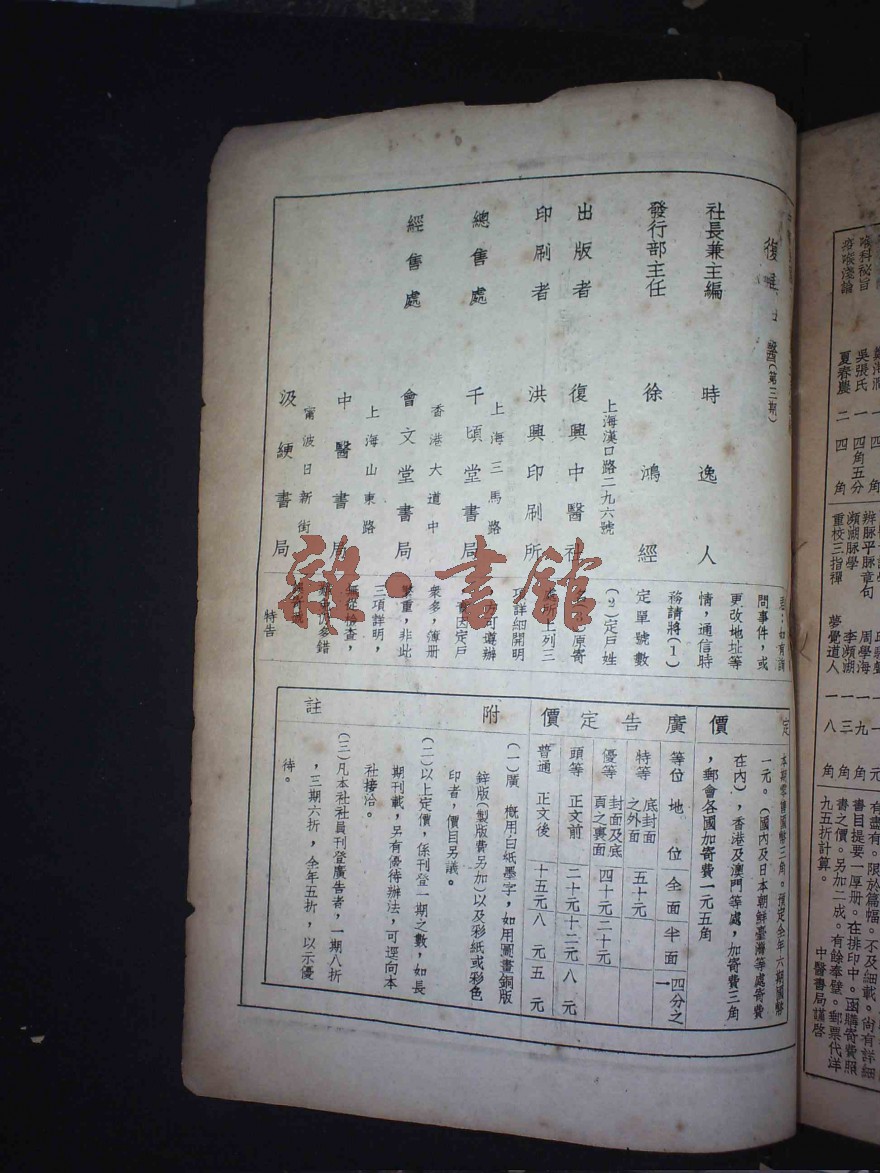 社長兼主編 時逸人
發行部主任 徐鴻經
上海漢口路二九六號
出版者 復興中醫社
印刷者 洪興印刷所
上海三馬路
總售處 千頃堂書局
香港大道中
經售處 會文堂書局
上海山東路
中醫書局
甯波日新街
汲綆書局
問事件，或
更改地址等
情，通信時
務請將（1）
定單號數
（2）定戶姓
項詳細開明
方可遵辦
因定戶
衆多，簿册
繁重，非此
三項詳明，
無從檢查，
特告
定價
本期零售國幣三角。預定全年六期國幣
一元。（國內及日本朝鮮臺灣等處寄費
在內），香港及澳門等處，加寄費三角
，郵會各國加寄費一元五角
廣告定價
等位 地位 全面 半面 四分之一
特等 底封面之外面 五十元
優等 封面及底頁之裏面 四十元 二十元
頭等 正文前 二十元 十二元 八元
普通 正文後 十五元 八元 五元
附註
（一）廣 概用白紙墨字，如用圖畫銅版
鋅版（製版費另加）以及彩紙或彩色
印者，價目另議。
（二）以上定價，係刊登一期之數，如長
期刊載，另有優待辦法，可逕向本
社接洽。
（三）凡本社社員刊登廣告者，一期八折
，三期六折，全年五折，以示優
待。
雜·書館
喉科秘旨 吳張氏 一 四角五分
疫喉淺論 夏春農 二 四角
辨脉平脉章句 周學海 一 九
瀕湖脉學 李瀕湖 一 三
重校三指禪 夢覺道人 一 八角
有盡有。限於篇幅。不及細載。尙有詳細
書目提要一厚册。在排印中。函購寄費照
書之價。另加二成。有餘奉璧。郵票代洋
九五折計算。
中醫書局謹啓